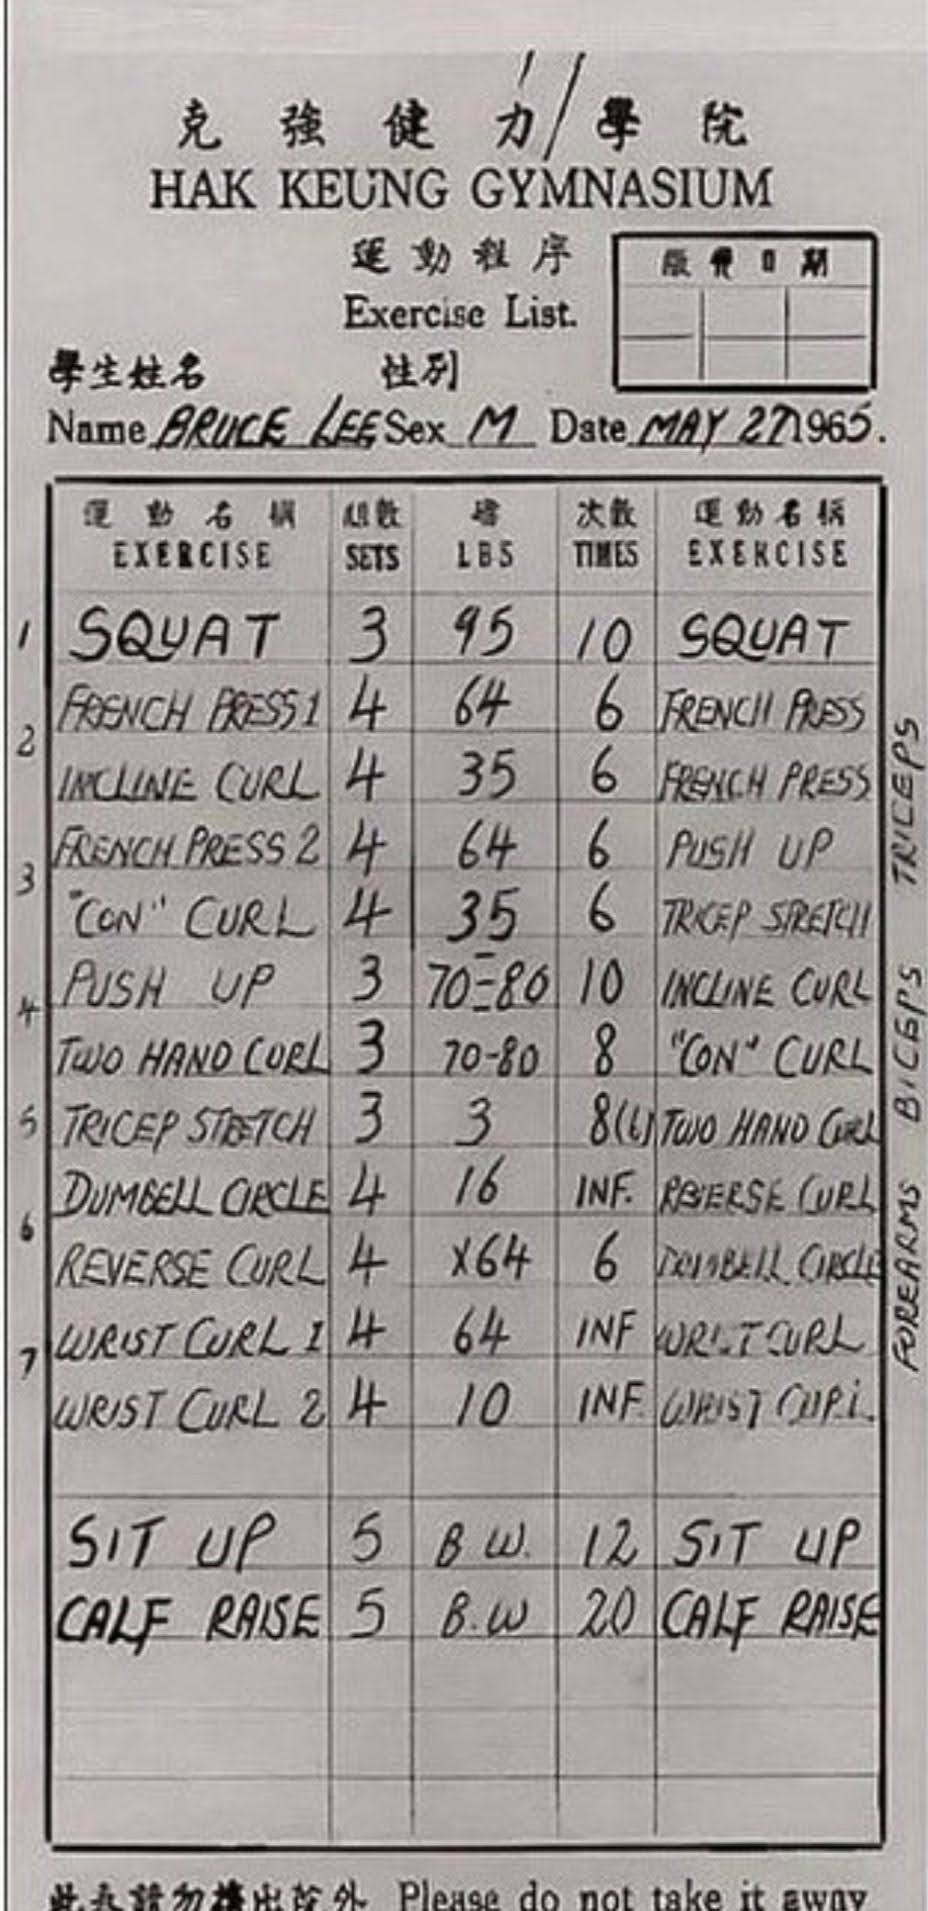 克強健力學院
HAK KEUNG GYMNASIUM
運動程序
Exercise List.
繳費日期
學生姓名 性別
Name BRUCE LEE Sex M Date MAY 27 1965.
運動名稱 組數 磅 次數 運動名稱
EXERCISE SETS LBS TIMES EXERCISE
1 SQUAT 3 95 10 SQUAT
FRENCH PRESS 1 4 64 6 FRENCH PRESS
2 INCLINE CURL 4 35 6 FRENCH PRESS
FRENCH PRESS 2 4 64 6 PUSH UP
3 "CON" CURL 4 35 6 TRICEP STRETCH
PUSH UP 3 70-80 10 INCLINE CURL
4 TWO HAND CURL 3 70-80 8 "CON" CURL
5 TRICEP STRETCH 3 3 8(6) TWO HAND CURL
DUMBELL CIRCLE 4 16 INF. REVERSE CURL
6 REVERSE CURL 4 X64 6 DUMBELL CIRCLE
WRIST CURL 1 4 64 INF WRIST CURL
7 WRIST CURL 2 4 10 INF. WRIST CURL
SIT UP 5 B.W. 12 SIT UP
CALF RAISE 5 B.W 20 CALF RAISE
TRICEPS
BICEPS
FOREARMS
請勿携出院外 Please do not take it away